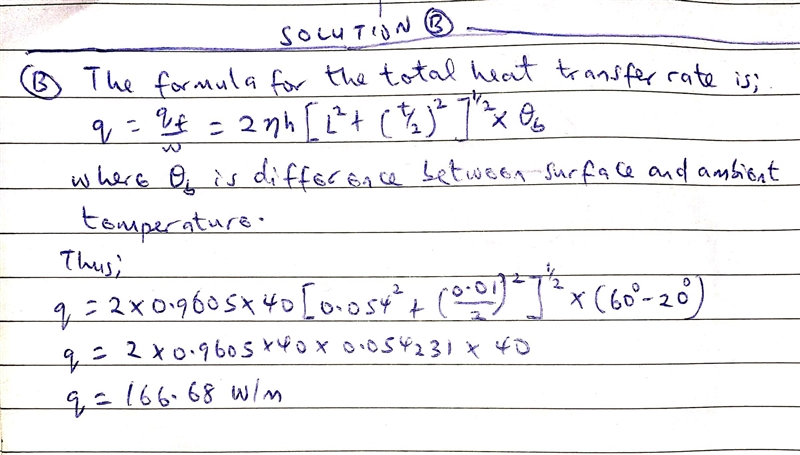 SOLUTION Ⓑ
Ⓑ The formula for the total heat transfer rate is;
q = qf/w = 2ηh [L² + (t/2)²]^1/2 × θb
where θb is difference between surface and ambient
temperature.
Thus;
q = 2 × 0.9605 × 40 [0.054² + (0.01/2)²]^1/2 × (60° - 20°)
q = 2 × 0.9605 × 40 × 0.054231 × 40
q = 166.68 W/m